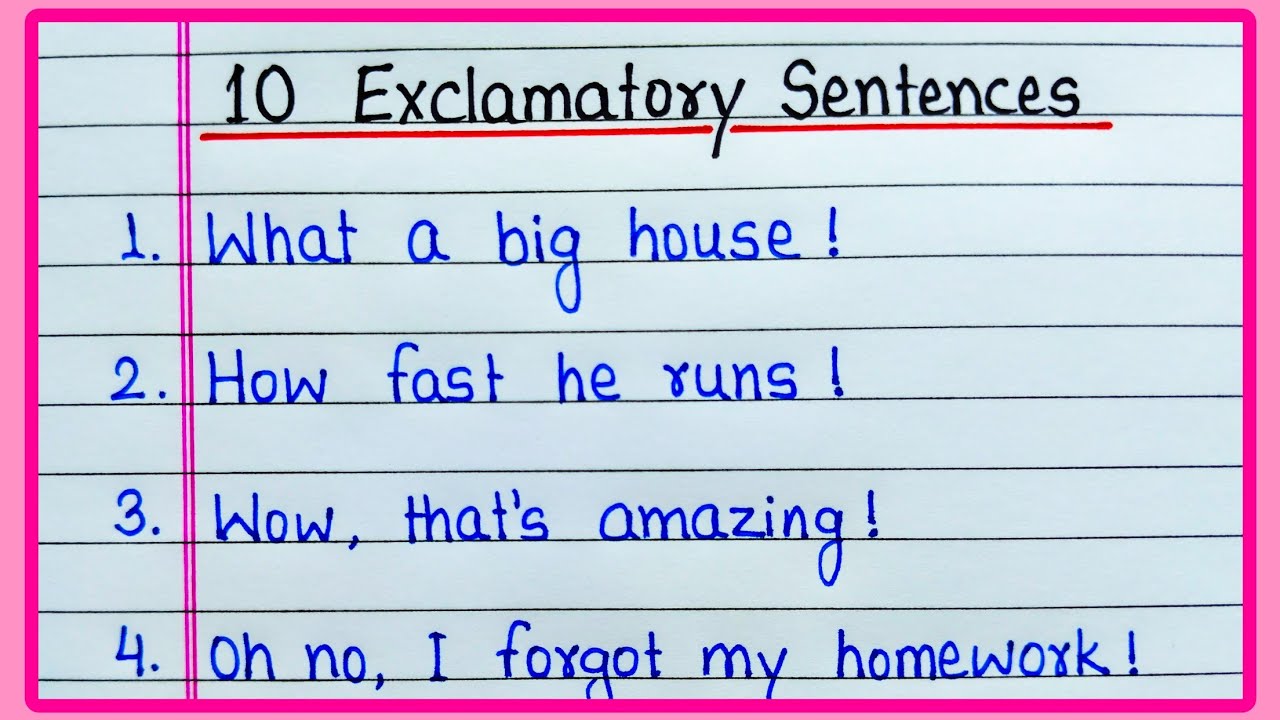 10 Exclamatory Sentences
1. What a big house!
2. How fast he runs!
3. Wow, that's amazing!
4. Oh no, I forgot my homework!